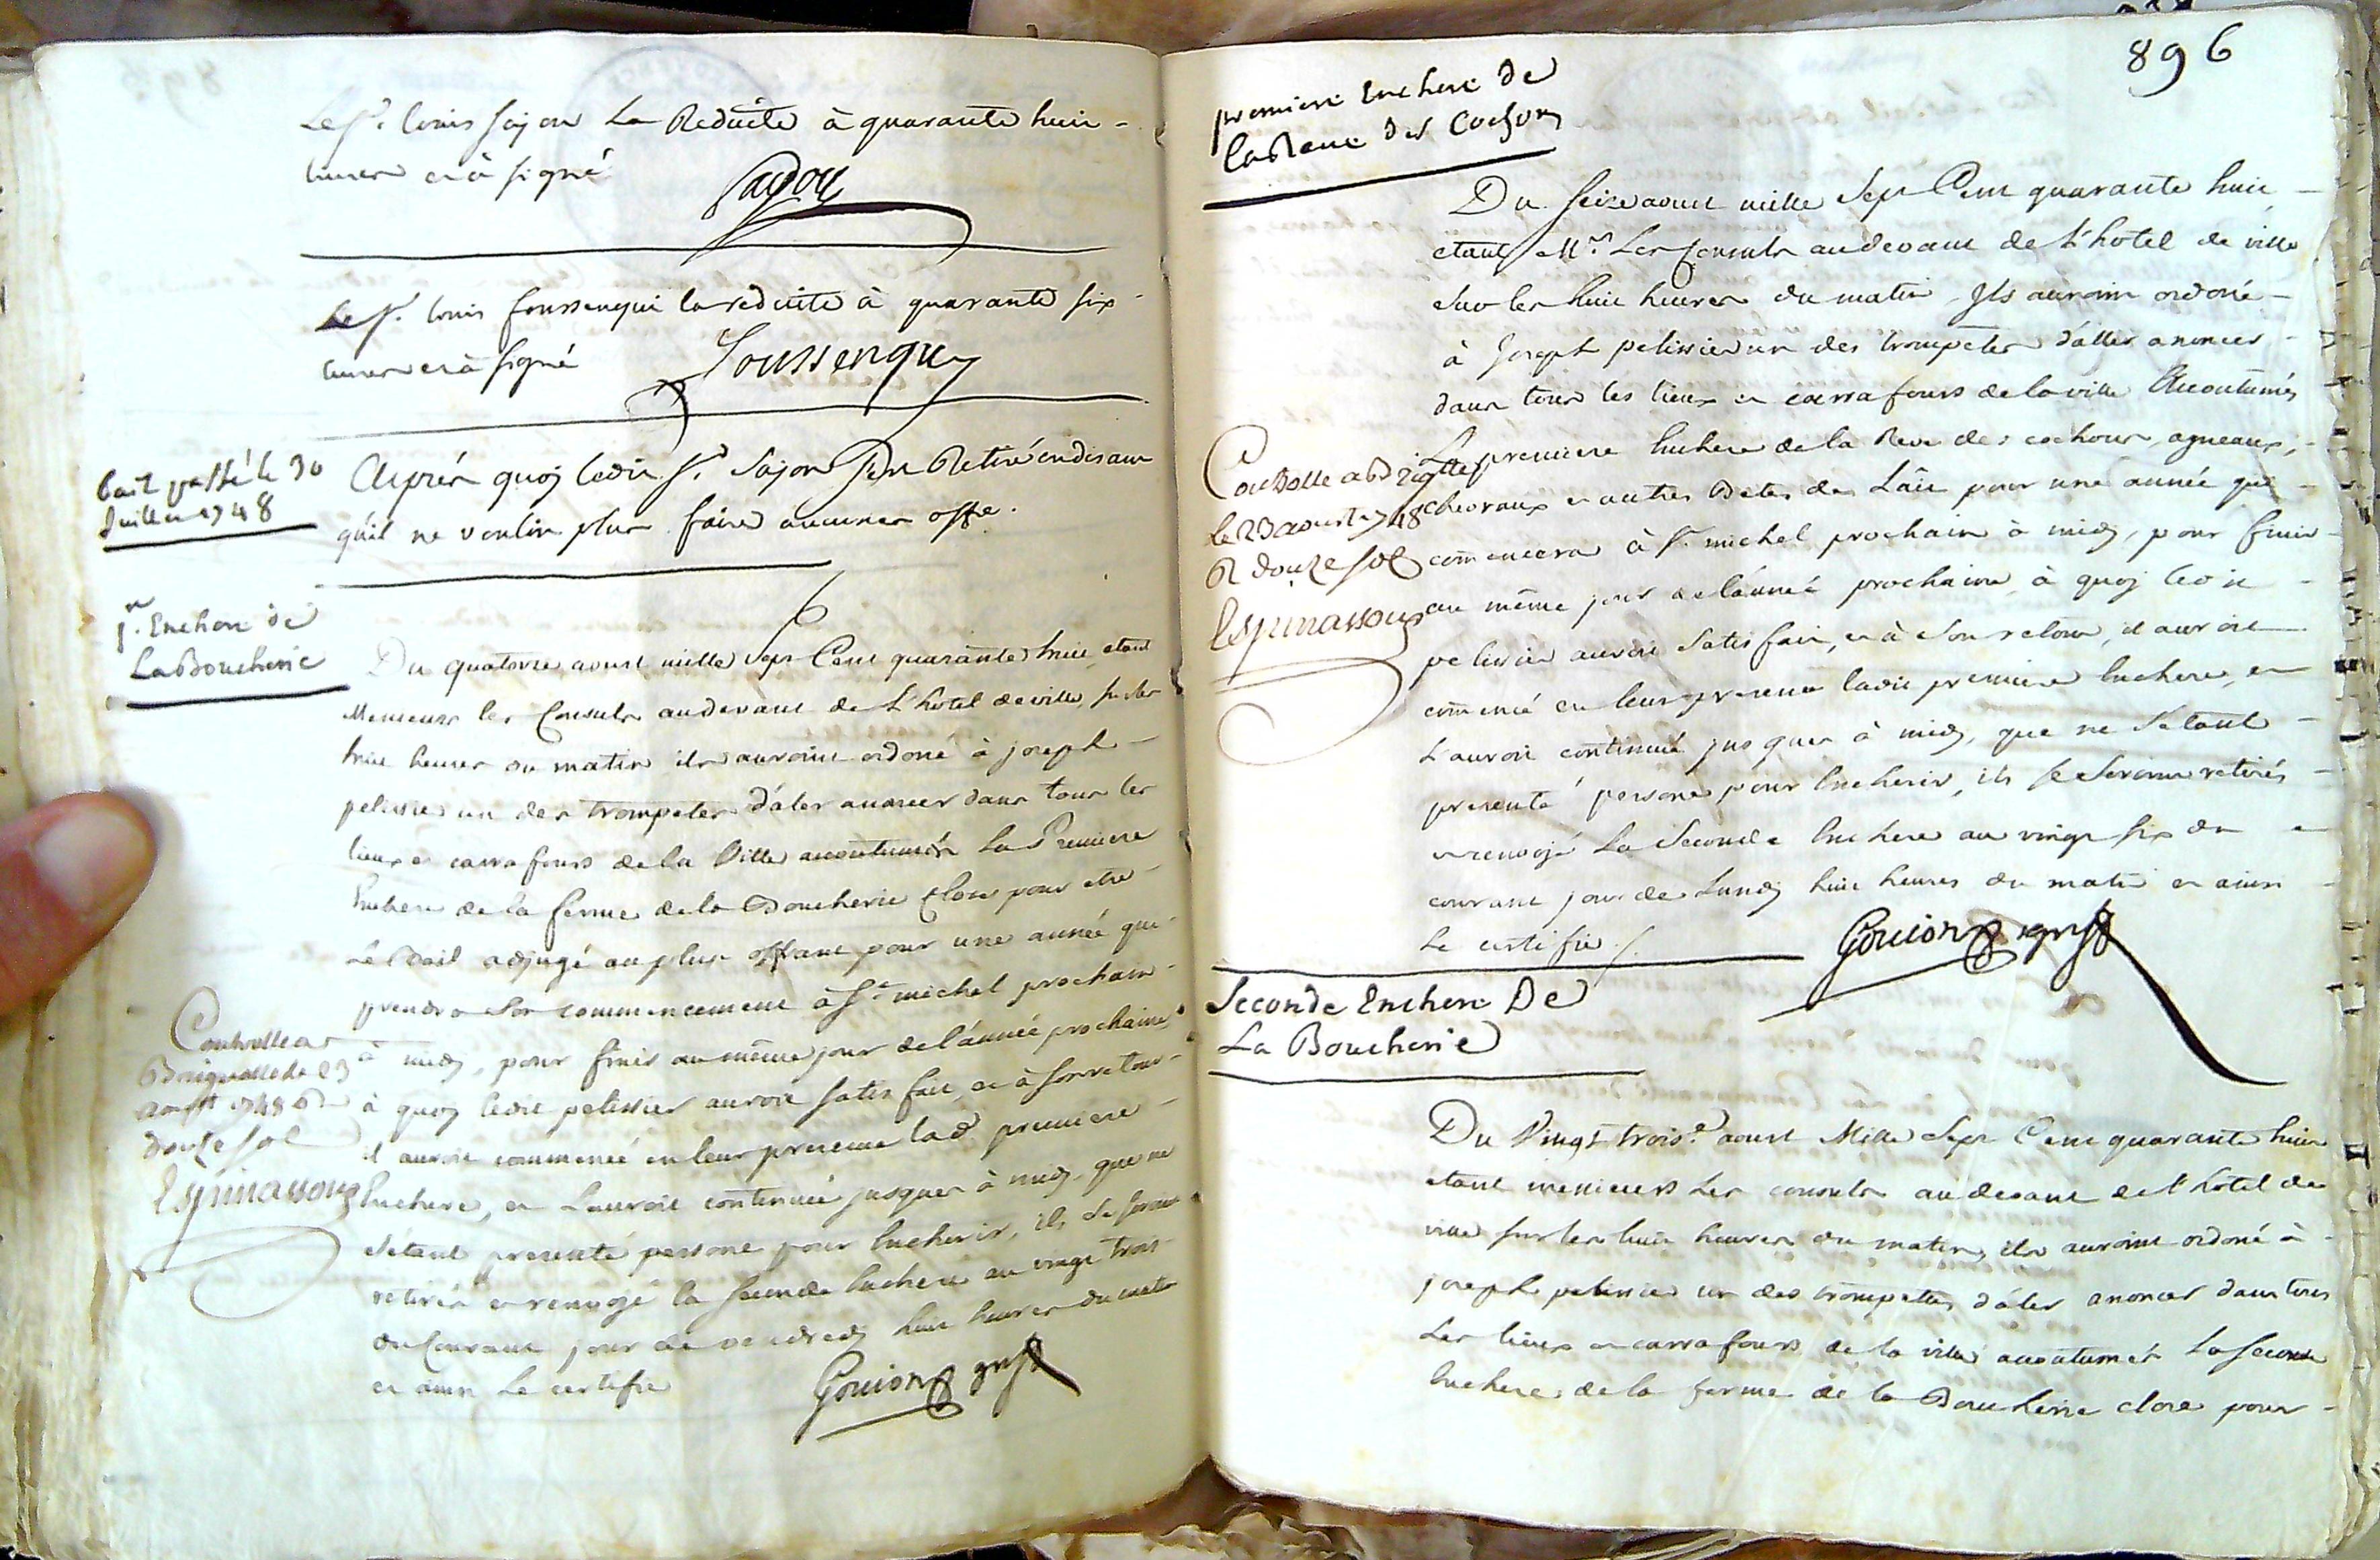 Le Sr. louis sajou La Reduite à quarante huit
livres et à signé
Sajou
Le Sr. louis foussenqui la reduite à quarante six
livres et à signé
Foussenquy
bail passé le 30
Juillet 1748
Aprés quoy ledit Sr. Sajou s'est Retiré en disant
qu'il ne vouloit plus faire aucunes offre.
1re. Enchere de
La Boucherie
Du quatorze aoust mille sept Cent quarante huit, etant
Messieurs les Consuls audevant de L'hotel de ville, sur les
huit heures du matin ils auroint ordoné à joseph
pelissier un des trompetes d'aler anoncer dans tous les
lieux et carrafours de la Ville acoutumés La Premiere
Enchere de la ferme de la Boucherie close pour etre
Le Bail adjugé au plus offrant pour une année qui
prendra son commencement à St. michel prochain
à midy, pour finir au même jour de l'année prochaine,
à quoy ledit pelissier auroit satisfait, et à son retour
il auroit commencé en leur presence lad. premiere
Enchere, et L'auroit continuée jusques à midy, que ne
s'etant presenté persone pour Encherir, ils se seroint
retirés et renvoyé la seconde Enchere au vingt trois
du Courant jour de vendredy huit heures du matin
et ainsi Le certifie
Gouion greff
Controlle a
Brignolle le 23
aoust 1748 R
douze sol
Espinassoux
896
premiere Enchere de
la Reve des Cochons
Du seize aoust mille sept Cent quarante huit,
etant Mrs. Les Consuls audevant de L'hotel de ville
sur les huit heures du matin, Ils auroint ordoné
à Joseph pelissier un des trompetes d'aller anoncer
dans tous les lieux et carrafours de la ville Acoutumés
La premiere Enchere de la Reve des cochons, agneaux,
chevraux et autres Betes de Lait pour une année qui
commencera à St. michel prochain à midy, pour finir
au même jour de l'année prochaine, à quoy ledit
pelissier auroit satisfait, et à son retour, il auroit
commencé en leur presence ladite premiere Enchere, et
L'auroit continué jusques à midy, que ne s'etant
presenté persone pour Encherir, ils se seroint retirés
et renvoyé La Seconde Enchere au vingt six du
courant jour de Lundy huit heures du matin et ainsi
Le certifie
Gouion greff
Controlle a Brignolles
le 23 aoust 1748
R douze sol
Espinassoux
Seconde Enchere De
La Boucherie
Du Vingt trois.e aoust Mille Sept Cent quarante huit
etant messieurs Les consuls audevant de l'hotel de
ville sur les huit heures du matin, ils auroint ordoné à
joseph pelissier un des trompettes d'aler anoncer dans tous
Les lieux et carrafours de la ville acoutumés La seconde
Enchere de la ferme de la Boucherie close pour